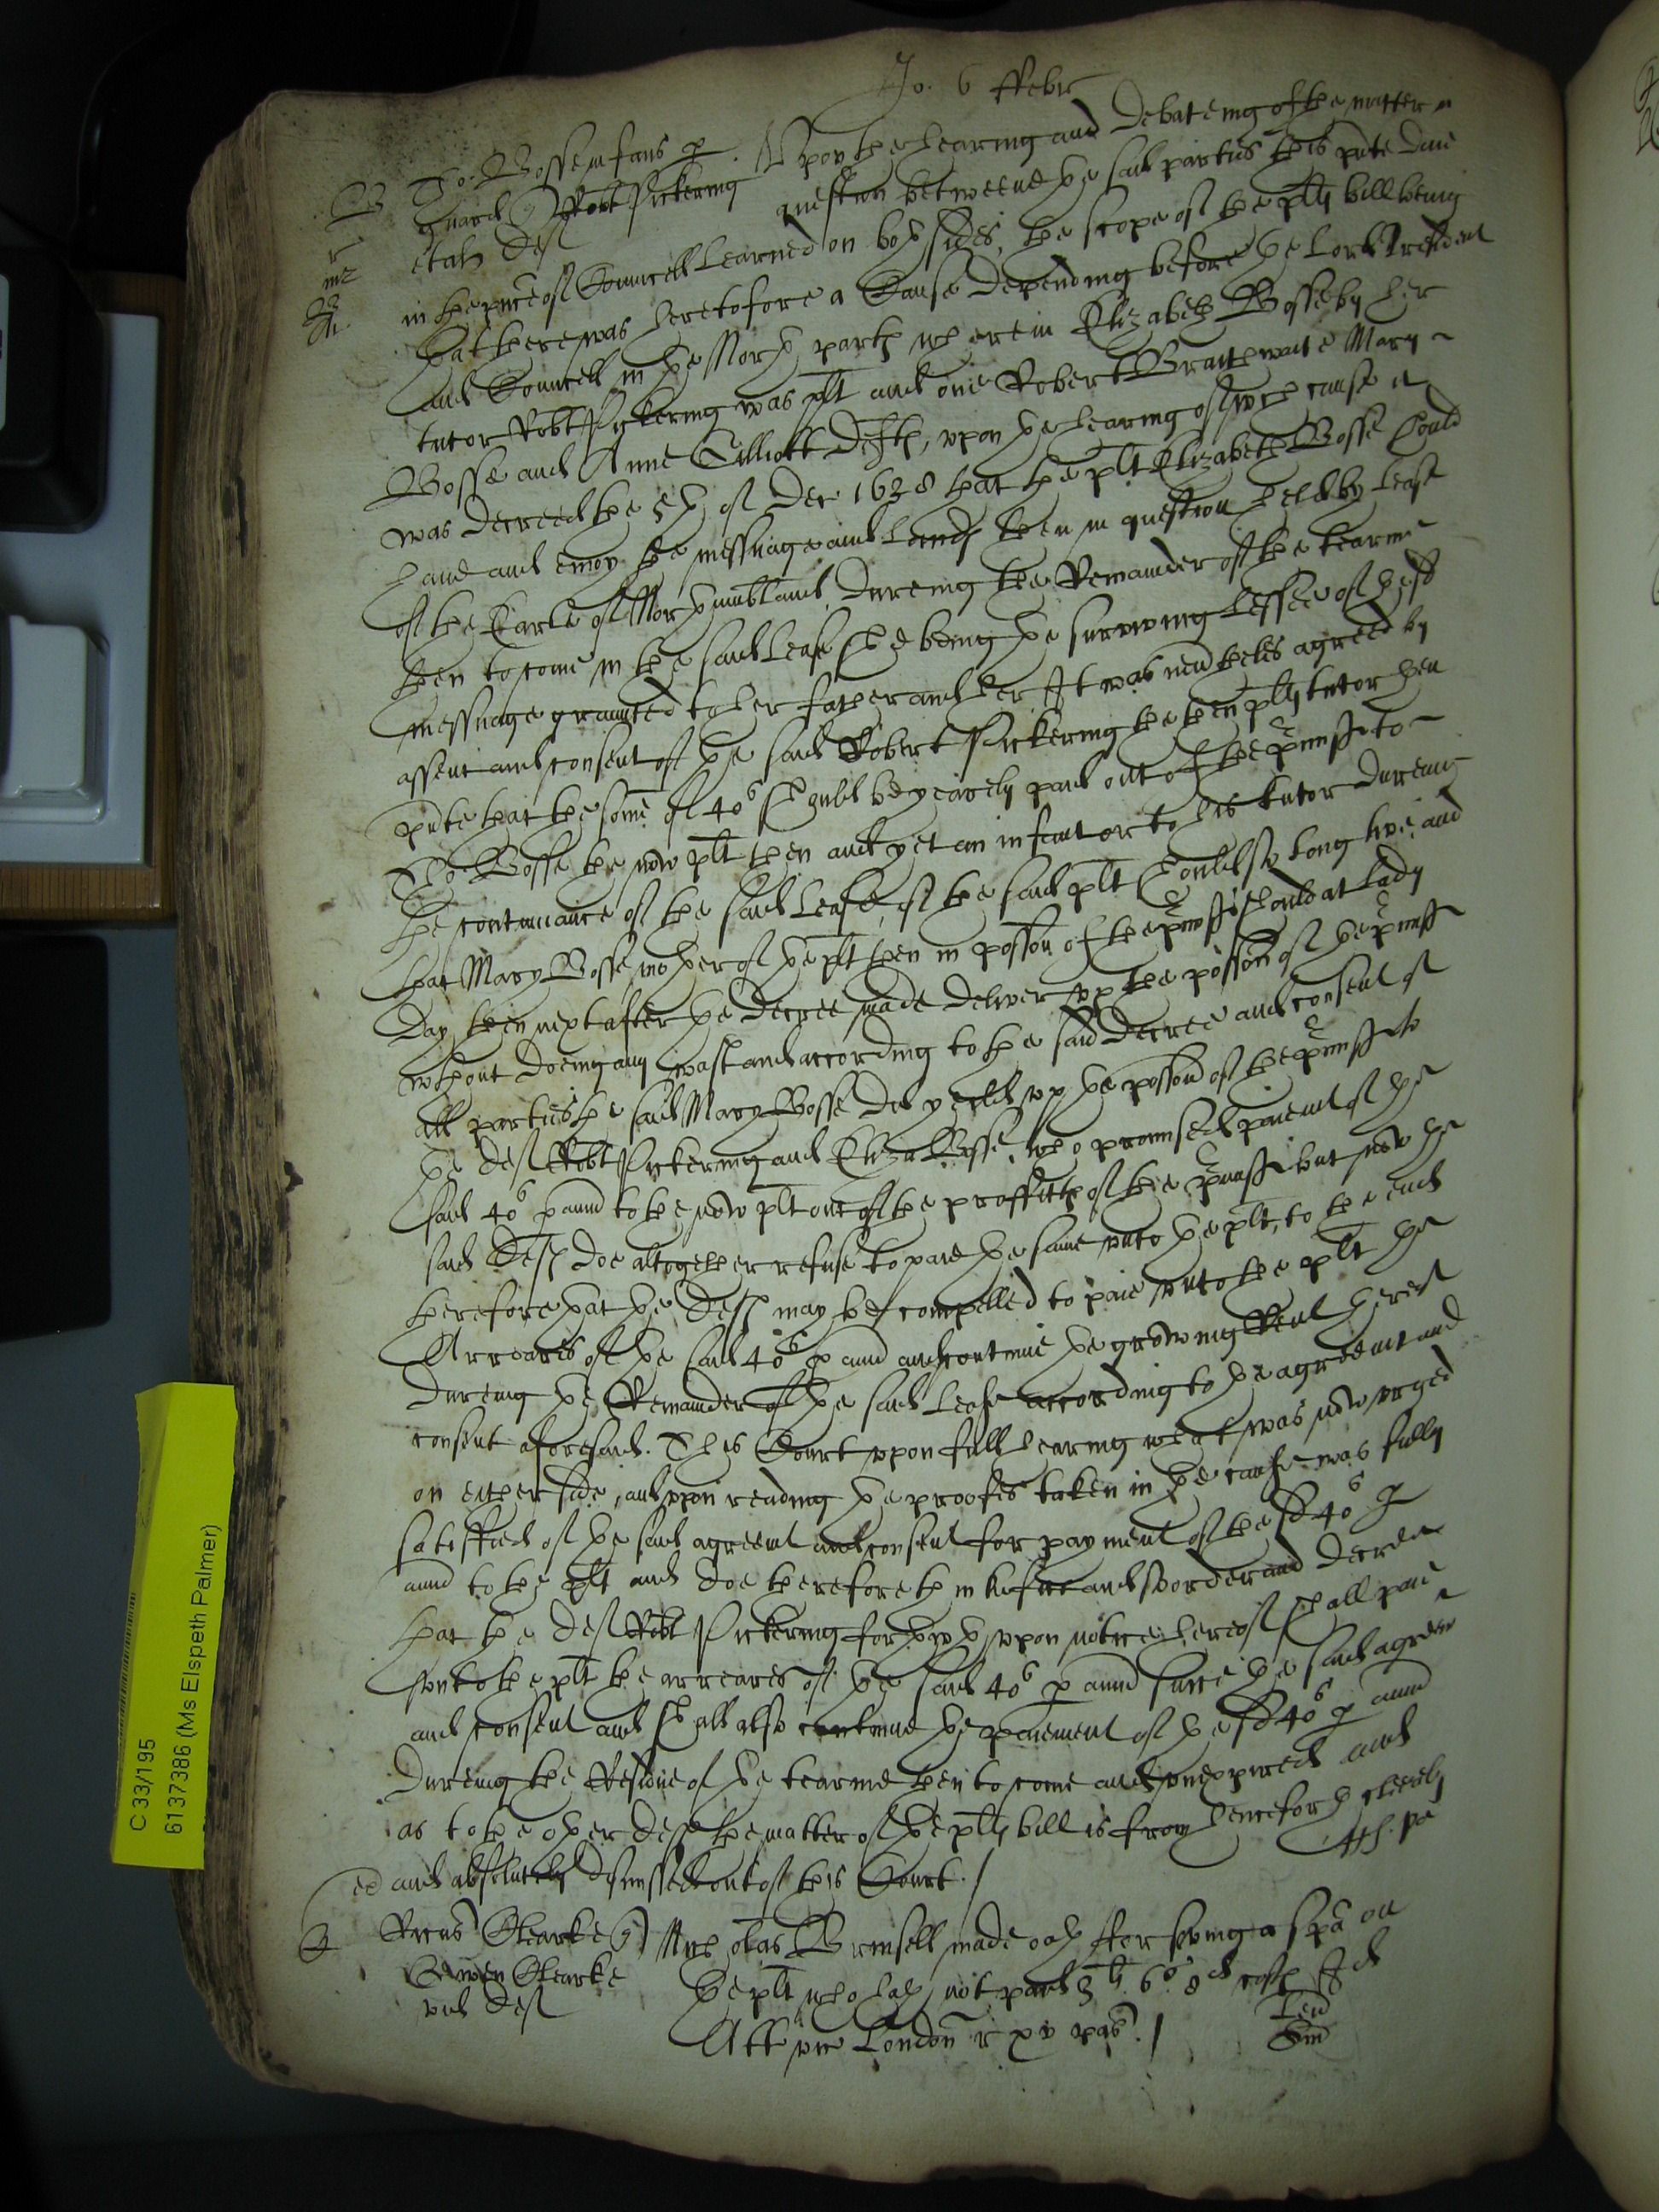 Jo. 6 ffebr
Tho. Bosse infans p
guard q Robt Pickering
et alȝ def
Vpon the hearing and debateing of the matter in
question betweene the said parties this pnte daie
in the pnce of Councell Learned on both sides, the scope of the plts bill being
that there was heretofore a Cause depending before the Lord President
and Councell in the North parts wherein Elizabeth Bosse by her
tutor Robt Pickering was plt and one Robert Braithwaite Mary
Bosse and Anne Elliott Defts, vpon the hearing of wch cause it
was decreed the 5th of Dec 1628 that the plt Elizabeth Bosse should
haue and enioy the messuage and Lands then in question held by Lease
of the Earle of Northumbland, dureing the Remainder of the tearme
then to come in the said Lease shee being the surviving Lessee of the sd
messuage graunted to her father and her It was neuthelesᵉ agreed by
assent and consent of the said Robert Pickering the then plts tutor then
pnte that the some of 40s should be yearely paid out of the pmiss to
Tho: Bosse the now plt then and yet an infant or to his tutor dureing
the continuance of the said Lease, if the said plt should so long live, and
that Mary Bosse mother of the plt then in posson of the pmiss should at Lady
Day then next after the decree made deliver vp the posson of the pmiss
wthout doeing any wast and according to the said decree and consent of
all parties the said Mary Bosse did yeild vp the posson of the pmiss to
the def Robt Pickering and Eliza Bosse, who promised paiemt of the
said 40s p annu to the now plt out of the proffitts of the pmiss but now the
said Defts doe altogether refuse to paie the same vnto the plt, to the end
therefore that the Defts may be compelled to paie vnto the plt the
Arreares of the said 40s p annu and continue the growing Rent thereof
dureing the Remainder of the said Lease according to the agreemt and
consent aforesaid. This Court vpon full hearing what was now vrged
on either side, and vpon reading the proofes taken in the cause was fully
satisfied of the said agreemt and consent for payment of the sd 40s p
annu to the plt and doe therefore thinke fitt and so order and decree
that the def Robt Pickering forthwth vpon notice hereof shall paie
vnto the plt the arreares of the said 40s p annu since the said agreemt
and consent and shall also continue the paiement of the sd 40s p annu
dureing the Residue of the tearme then to come and vnexpired and
as to the other defts the matter of the plts bill is from henceforth cleerely
and absolutely dismissed out of this Court. /
Ricus Clearke q
Owen Clearke
vid def
Nicholas Brinsell made oath for serving a spa on
the plt who hath not paid 3li 6s 8d costs Id
Att vic London
C 33/195
6137386 (Ms Elspeth Palmer)